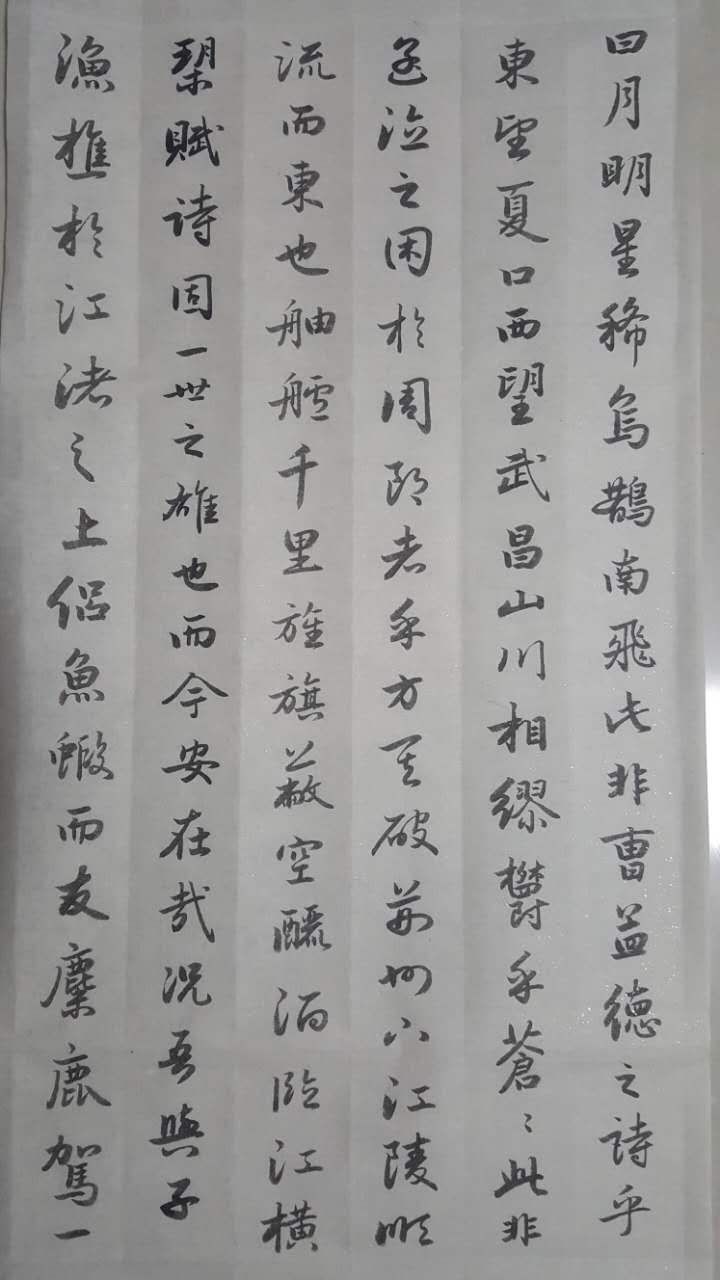 曰月明星稀烏鵲南飛此非曹孟德之詩乎
東望夏口西望武昌山川相繆鬱乎蒼〻此非
孟德之困於周郎者乎方其破荊州下江陵順
流而東也舳艫千里旌旗蔽空釃酒臨江橫
槊賦詩固一世之雄也而今安在哉況吾與子
漁樵於江渚之上侶魚蝦而友麋鹿駕一